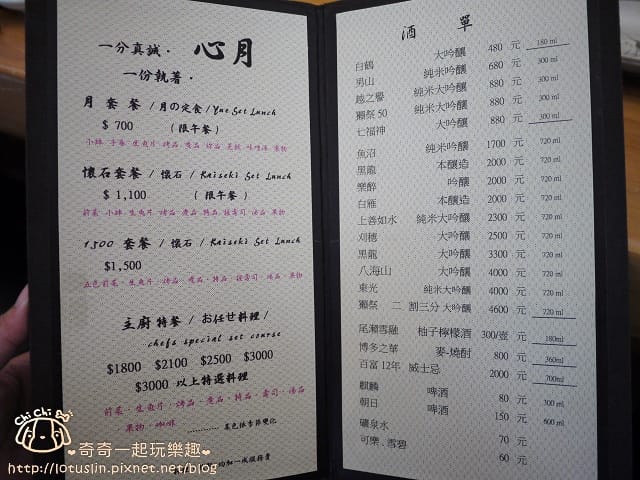 一分真誠．
心月
一份執著．
月 套 餐 / 月の定食 / Yue Set Lunch
$ 700 （限午餐）
懷石套餐 / 懷石 / Kaiseki Set Lunch
$ 1,100 （限午餐）
1,500 套餐 / 懷石 / Kaiseki Set Lunch
$1,500
主廚特餐 / お任せ料理 /
chefs special set course
$1800 $2100 $2500 $3000
$3000 以上特選料理
酒 單
白鶴 大吟釀 480 元 180 ml
男山 純米吟釀 680 元 300 ml
越之譽 純米大吟釀 880 元 300 ml
獺祭 50 純米大吟釀 880 元 300 ml
七福神 大吟釀 880 元 300 ml
魚沼 純米吟釀 1700 元 720 ml
黑龍 本釀造 2000 元 720 ml
樂醉 吟釀 2000 元 720 ml
白雁 本釀造 2000 元 720 ml
上善如水 純米大吟釀 2300 元 720 ml
刈穗 大吟釀 2500 元 720 ml
黑龍 大吟釀 3300 元 720 ml
八海山 大吟釀 4000 元 720 ml
東光 純米大吟釀 4000 元 720 ml
獺祭 二 割三分 大吟釀 4600 元 720 ml
尾瀨雪融 柚子檸檬酒 300/壺 元 180ml
博多之華 麥-燒酎 800 元 360ml
百富 12年 威士忌 2000 元 700ml
麒麟 啤酒 80 元 300 ml
朝日 啤酒 150 元 600 ml
礦泉水 70 元
可樂．雪碧 60 元
Chi Chi
❤奇奇一起玩樂趣❤
http://lotuslin.pixnet.net/blog